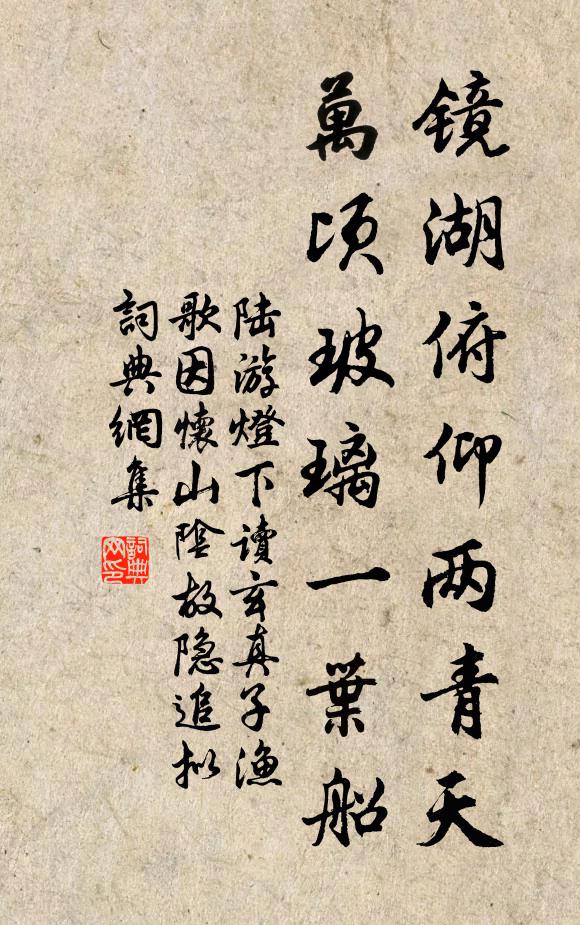 镜湖俯仰两青天
萬頃玻璃一葉船
陆游燈下讀玄真子渔
歌因懷山陰故隐追拟
詞典網集
詞典
网印